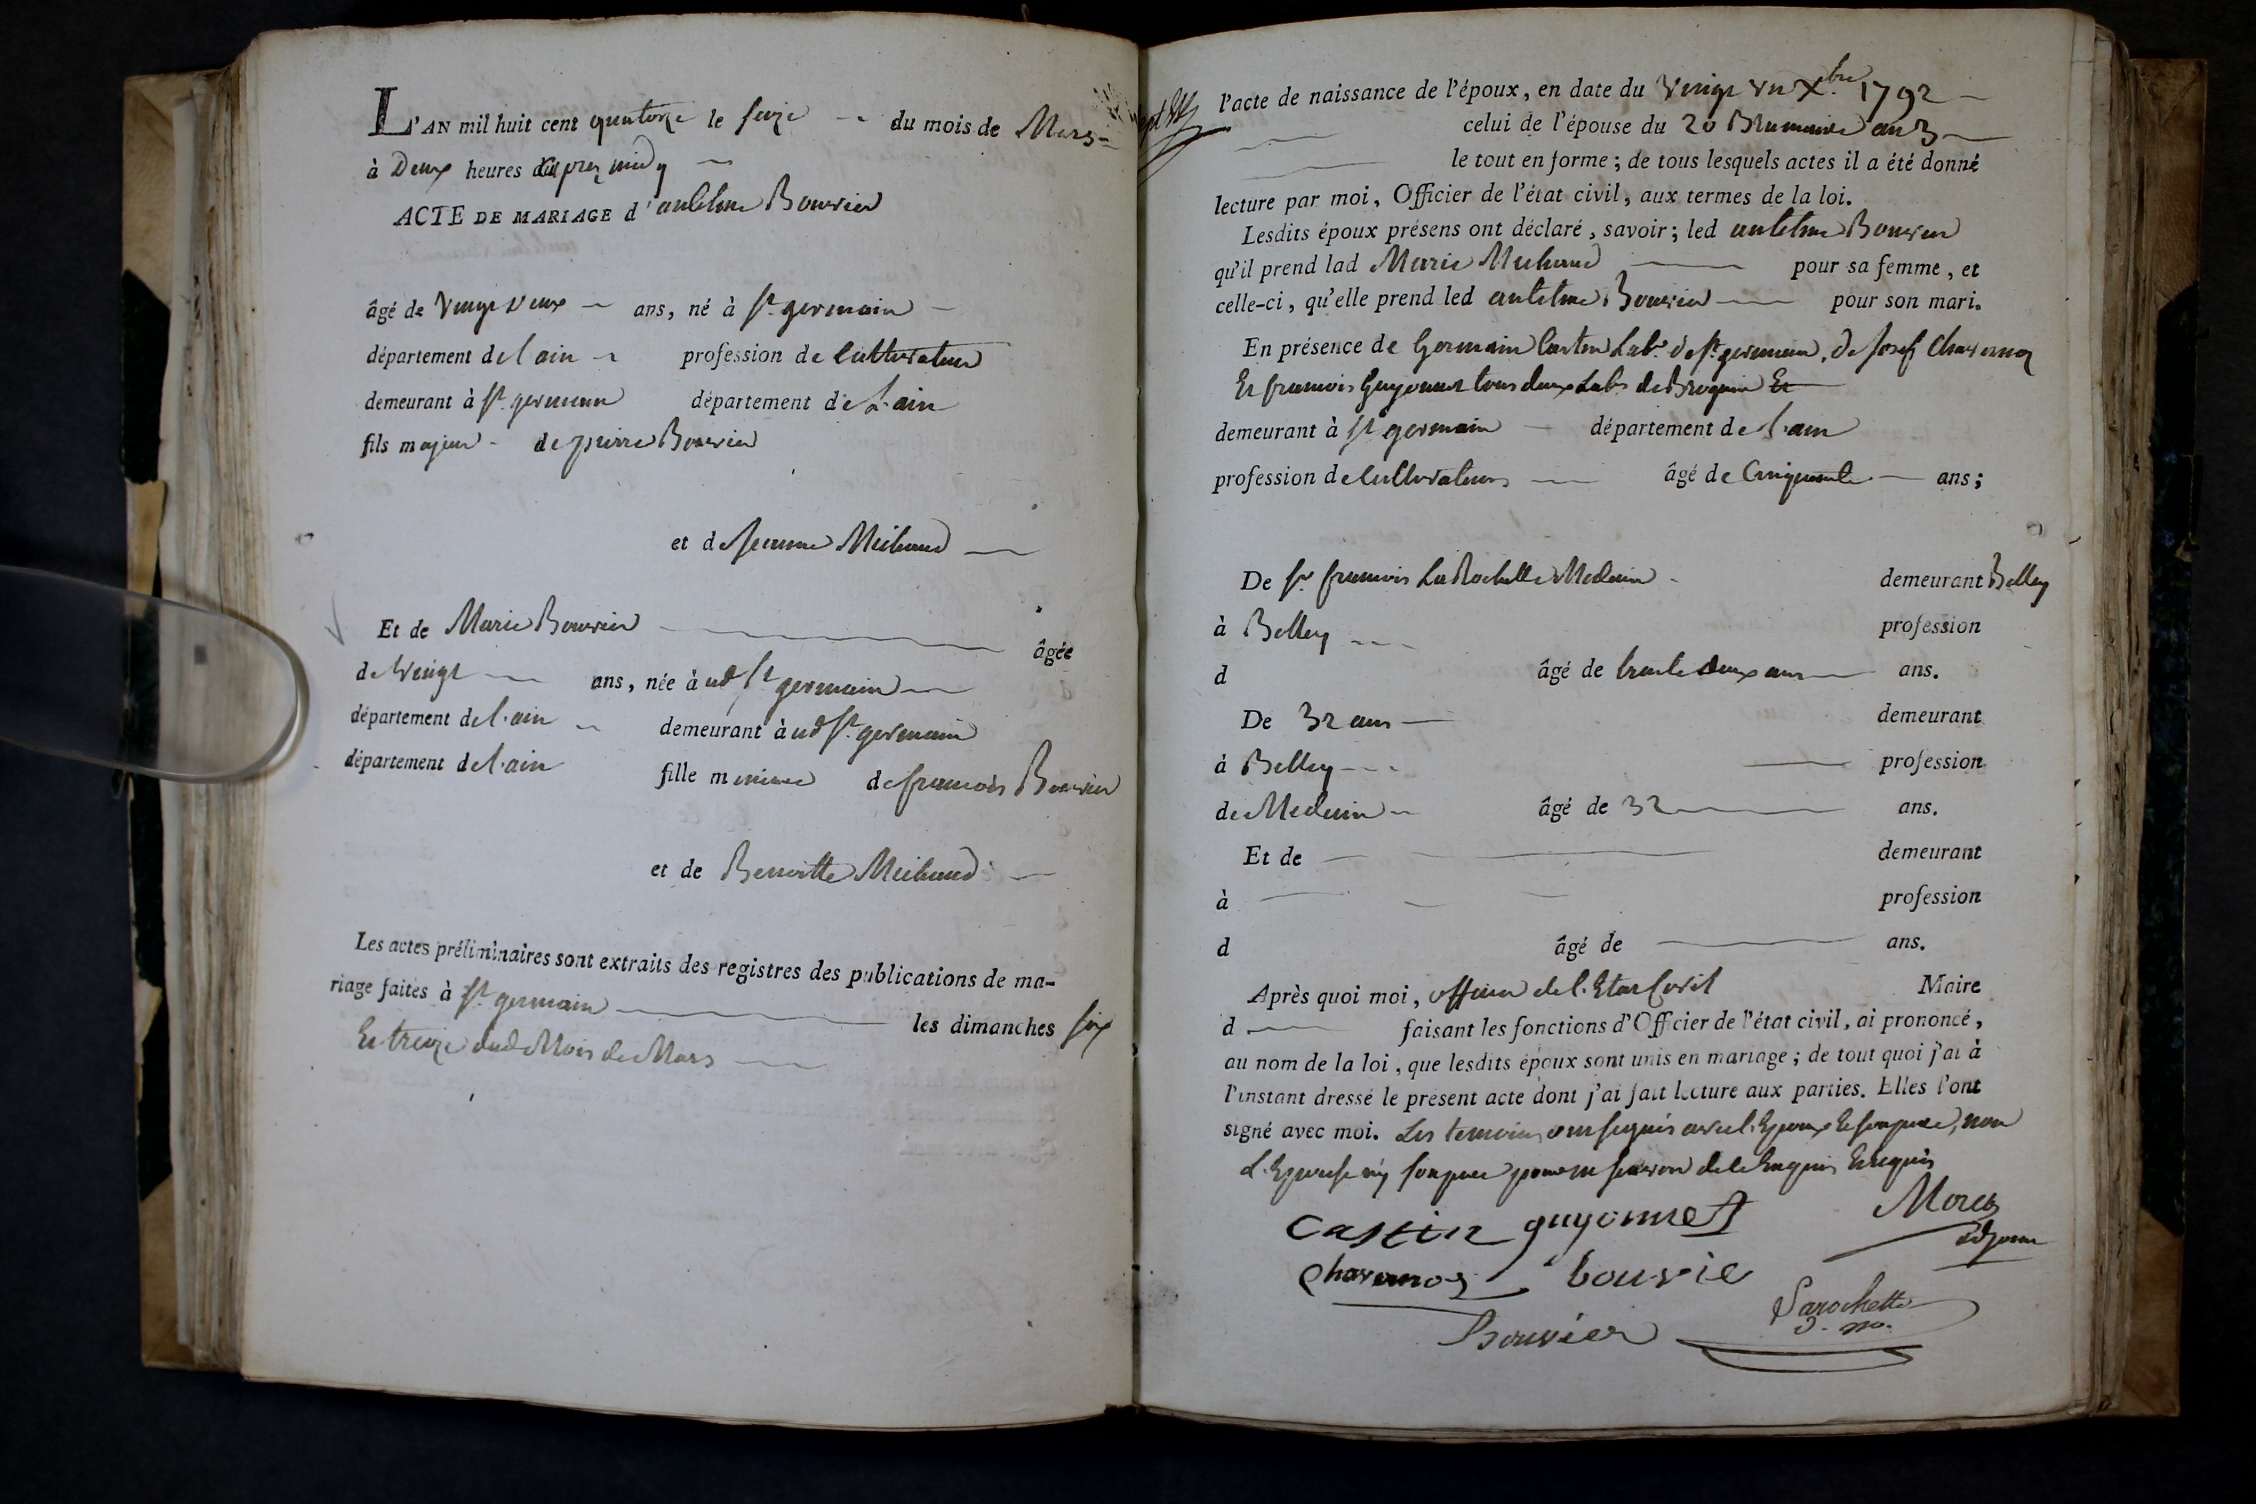 L'AN mil huit cent quatorze le seize du mois de Mars
à Deux heures du après midy
ACTE DE MARIAGE d'antelme Bouvier
âgé de Vingt deux ans, né à St. germain
département de l'ain profession de Cultivateur
demeurant à St. germain département de L'ain
fils majeur de pierre Bouvier
et de Jeanne Michaud
Et de Marie Bouvier
âgée
de Vingt ans, née à ud St germain
département de l'ain demeurant à ud St. germain
département de l'ain fille mineure de francois Bouvier
et de Benoitte Michaud
Les actes préliminaires sont extraits des registres des publications de ma-
riage faites à St germain les dimanches six
Et treize dud Mois de Mars
l'acte de naissance de l'époux, en date du Vingt un Xbre 1792
celui de l'épouse du 20 Brumaire an 3
le tout en forme; de tous lesquels actes il a été donné
lecture par moi, Officier de l'état civil, aux termes de la loi.
Lesdits époux présens ont déclaré, savoir; led antelme Bouvier
qu'il prend lad Marie Michaud pour sa femme, et
celle-ci, qu'elle prend led antelme Bouvier pour son mari.
En présence de Germain Castin Labr. de St germain, de Josef Chavanoz
Et francois Guyonnet tous deux Labrs de Brognin Et
demeurant à St germain département de l'ain
profession de Cultivateurs âgé de Cinquante ans;
De Sr francois La Rochette Medecin demeurant Belley
à Belley profession
d âgé de trente deux ans ans.
De 32 ans demeurant
à Belley profession
de Medecin âgé de 32 ans.
Et de demeurant
à profession
d âgé de ans.
Après quoi moi, officier de l'Etat Civil Maire
d faisant les fonctions d'Officier de l'état civil, ai prononcé,
au nom de la loi, que lesdits époux sont unis en mariage; de tout quoi j'ai à
l'instant dressé le présent acte dont j'ai fait lecture aux parties. Elles l'ont
signé avec moi. Les temoins ont signés avec l'Epoux Et son pere, non
L'Epouse ny son pere pour ne savoir de ce Enquis Et requis
Castin guyonnet Morel
adjoint
Chavanoz bouvie
Larochette
D. m.
Bouvier